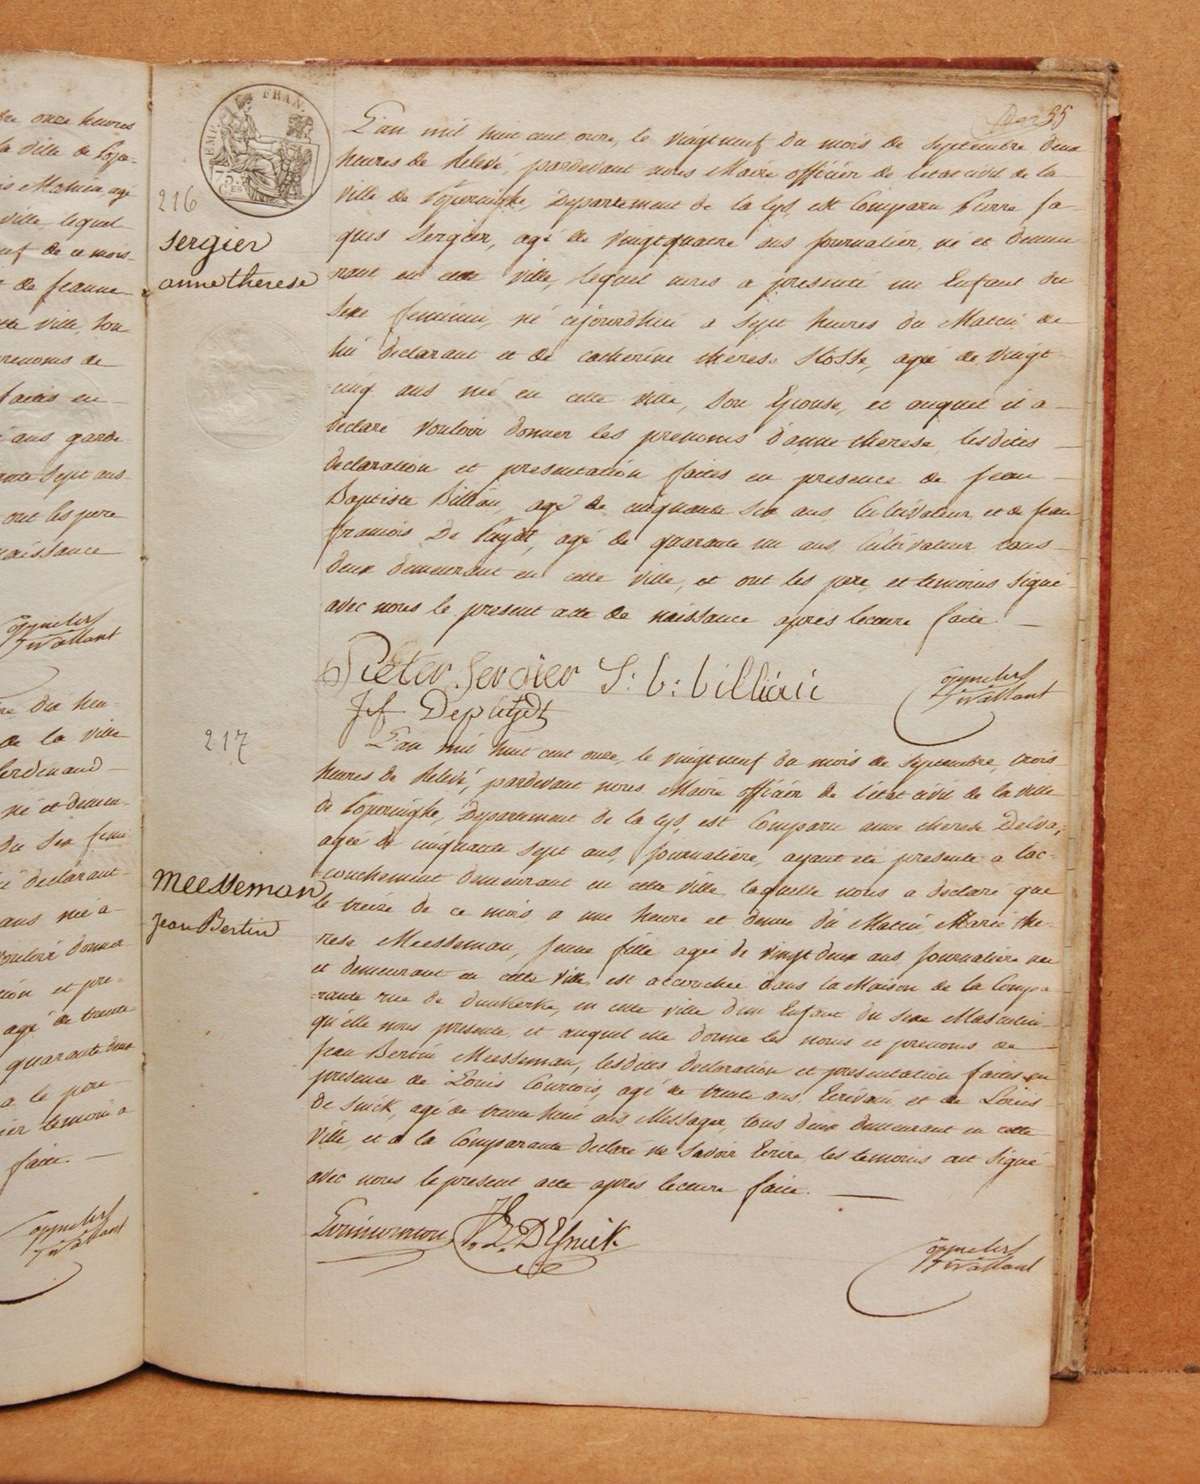 re onze heures
la ville de Pope-
agé
ville, lequel
neuf de ce mois
de jeanne
cette ville, son
prenoms de
faites en
ans garde
sept ans
ont les pere
naissance
dix heu-
de la ville
ferdinand
né et demeu-
du sex femi
declarant
ans née a
donner
et pre-
agé de trente
quarante deux
a le pere
temoin a
faite. —
35
EMP. FRAN.
216
Sergier
anne therese
L'an mil huit cent onze, le vingtneuf du mois de septembre deux
heures de Relevé, pardevant nous Maire officier de l'etat civil de la
ville de Poperinghe, Departement de la Lys, est Comparu Pierre ja-
ques Sergier, agé de vingtquatre ans journalier, né et demeu
rant en cette ville, lequel nous a presenté un Enfant du
Sexe feminin, né cejourdhui a sept heures du Matin de
lui declarant et de catherine therese Kosse, agée de vingt
cinq ans née en cette ville, son Epouse, et auquel il a
declaré vouloir donner les prenoms d'anne therese, lesdites
declaration et presentation faites en presence de jean
Baptiste Billiau, agé de cinquante six ans Cultivateur, et de jean
francois De Puydt, agé de quarante un ans, Cultivateur tous
deux demeurant en cette ville, et ont les pere, et temoins signé
avec nous le present acte de naissance après lecture faite. —
Pieter Sergier J: b: billiau
J f Depuydt
217
Meesseman
Jean Bertin
L'an mil huit cent onze, le vingtneuf du mois de septembre, trois
heures de Relevé, pardevant nous Maire officier de l'etat civil de la ville
de Poperinghe, Departement de la Lys, est Comparu anne therese Delva,
agée de cinquante sept ans, journalière, ayant été presente a l'ac-
couchement demeurant en cette ville laquelle nous a declaré que
le treize de ce mois a une heure et demie du Matin Marie the-
rese Meesseman, jeune fille agée de vingt deux ans journaliere née
et demeurant en cette ville, est accouchée dans la Maison de la Compa
rante rue de dunkerke, en cette ville d'un Enfant du sexe Masculin
qu'elle nous presente, et auquel elle donne les noms et prenoms de
jean Bertin Meesseman, lesdites declaration et presentation faites en
presence de Louis Courtois, agé de trente ans Ecrivain et de Louis
De Snick, agé de trente huit ans Messager, tous deux demeurant en cette
ville, et a la Comparante declaré ne savoir Ecrire, les temoins ont signé
avec nous le present acte après lecture faite. —
L: DeSnick